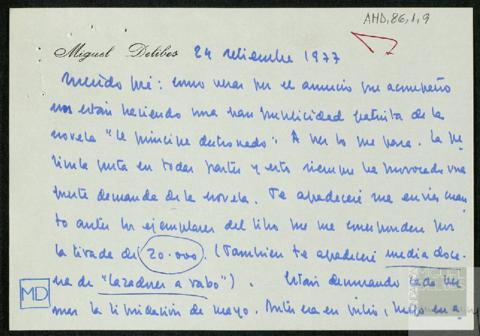 AMD, 86, 1, 9
Miguel Delibes 24 setiembre 1977
Querido Pepé: como verás por el anuncio que acompaño
nos están haciendo una gran publicidad gratuita de la
novela "El príncipe destronado". A ver lo que pasa. La pe-
lícula gusta en todas partes y esto siempre ha provocado una
fuerte demanda de la novela. Te agradeceré me envíes cuan-
to antes los ejemplares del libro que me corresponden por
la tirada de 20.000. (También te agradeceré media doce-
na de "Cazadores a rabo"). Están demorando cada vez
más la liquidación de mayo. Antes era en julio, luego en a
MD